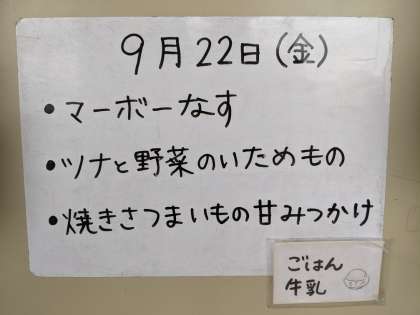 9月22日(金)
・マーボーなす
・ツナと野菜のいためもの
・焼きさつまいもの甘みつかけ
ごはん
牛乳